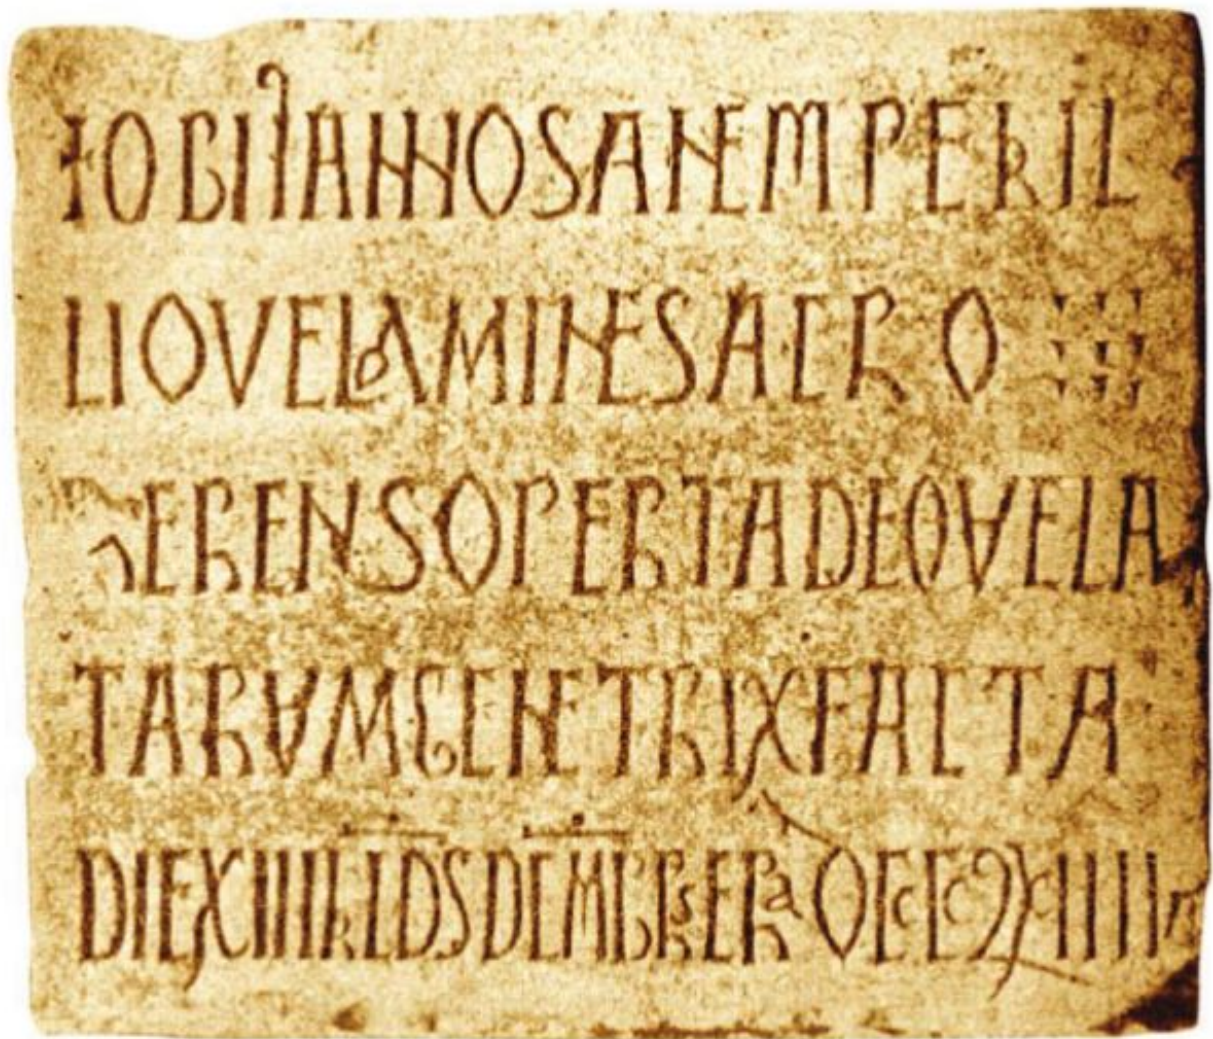 +OBIITANNOSANEMPERIL
LIOVELAMINESACRO
HERENSOPERTADEOVELA
TARVMGENETRIXFACTA
DIEXIIIIKLDSDEMBRSERA